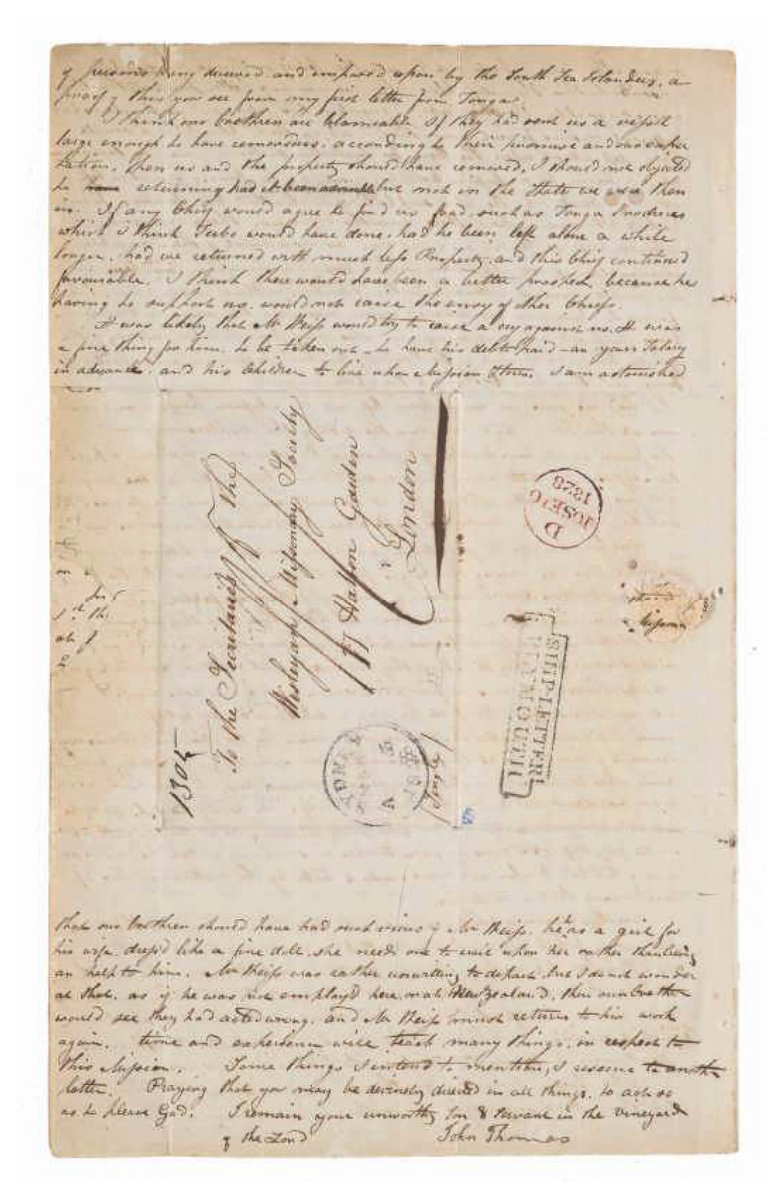 of persons being deceived and imposed upon by the South Sea Islanders, a
proof of this you see from my first letter from Tonga.
I think our brethren are blameable if they had sent us a vessel
large enough to have removed us, according to their promise and our expec
tation, then us and the property should have removed, I should not objected
to returning had it been but not in the state we were then
in. If any Chief would agree to find us food, such as Tonga Produces
which I think Tubo would have done, had he been left alone a while
longer, had we returned with much less Property, and this Chief continued
favourable. I think there would have been a better prospect, because he
having to support us, would not cause the envy of other Chiefs.
It was likely that Mr Weiss would try to raise a cry against us. It was
a fine thing for him, to be taken out to have his debts paid - an years Salary
in advance, and his Children to live upon Mission Stores. I am astonished
1305
To the Secretaries of the
Wesleyan Missionary Society
77 Hatton Garden
London
Single
D
10 SE 10
1828
SHIP-LETTER
PLYMOUTH
that our brethren should have had such views of Mr Weiss, he has a girl for
his wife, dress'd like a fine doll, she needs one to wait upon her rather than being
an help to him. Mr Weiss was rather unwilling to depart, but I do not wonder
at that, as if he was not employ'd here, or at New Zealand, then our breth
would see they had acted wrong, and Mr Weiss must return to his work
again. time and experience will teach many things, in respect to
this Mission. Some things I intend to mention, I reserve to another
letter. Praying that you may be devinely directed in all things, to act so
as to please God. I remain your unworthy Son & Servant in the vineyard
of the Lord John Thomas